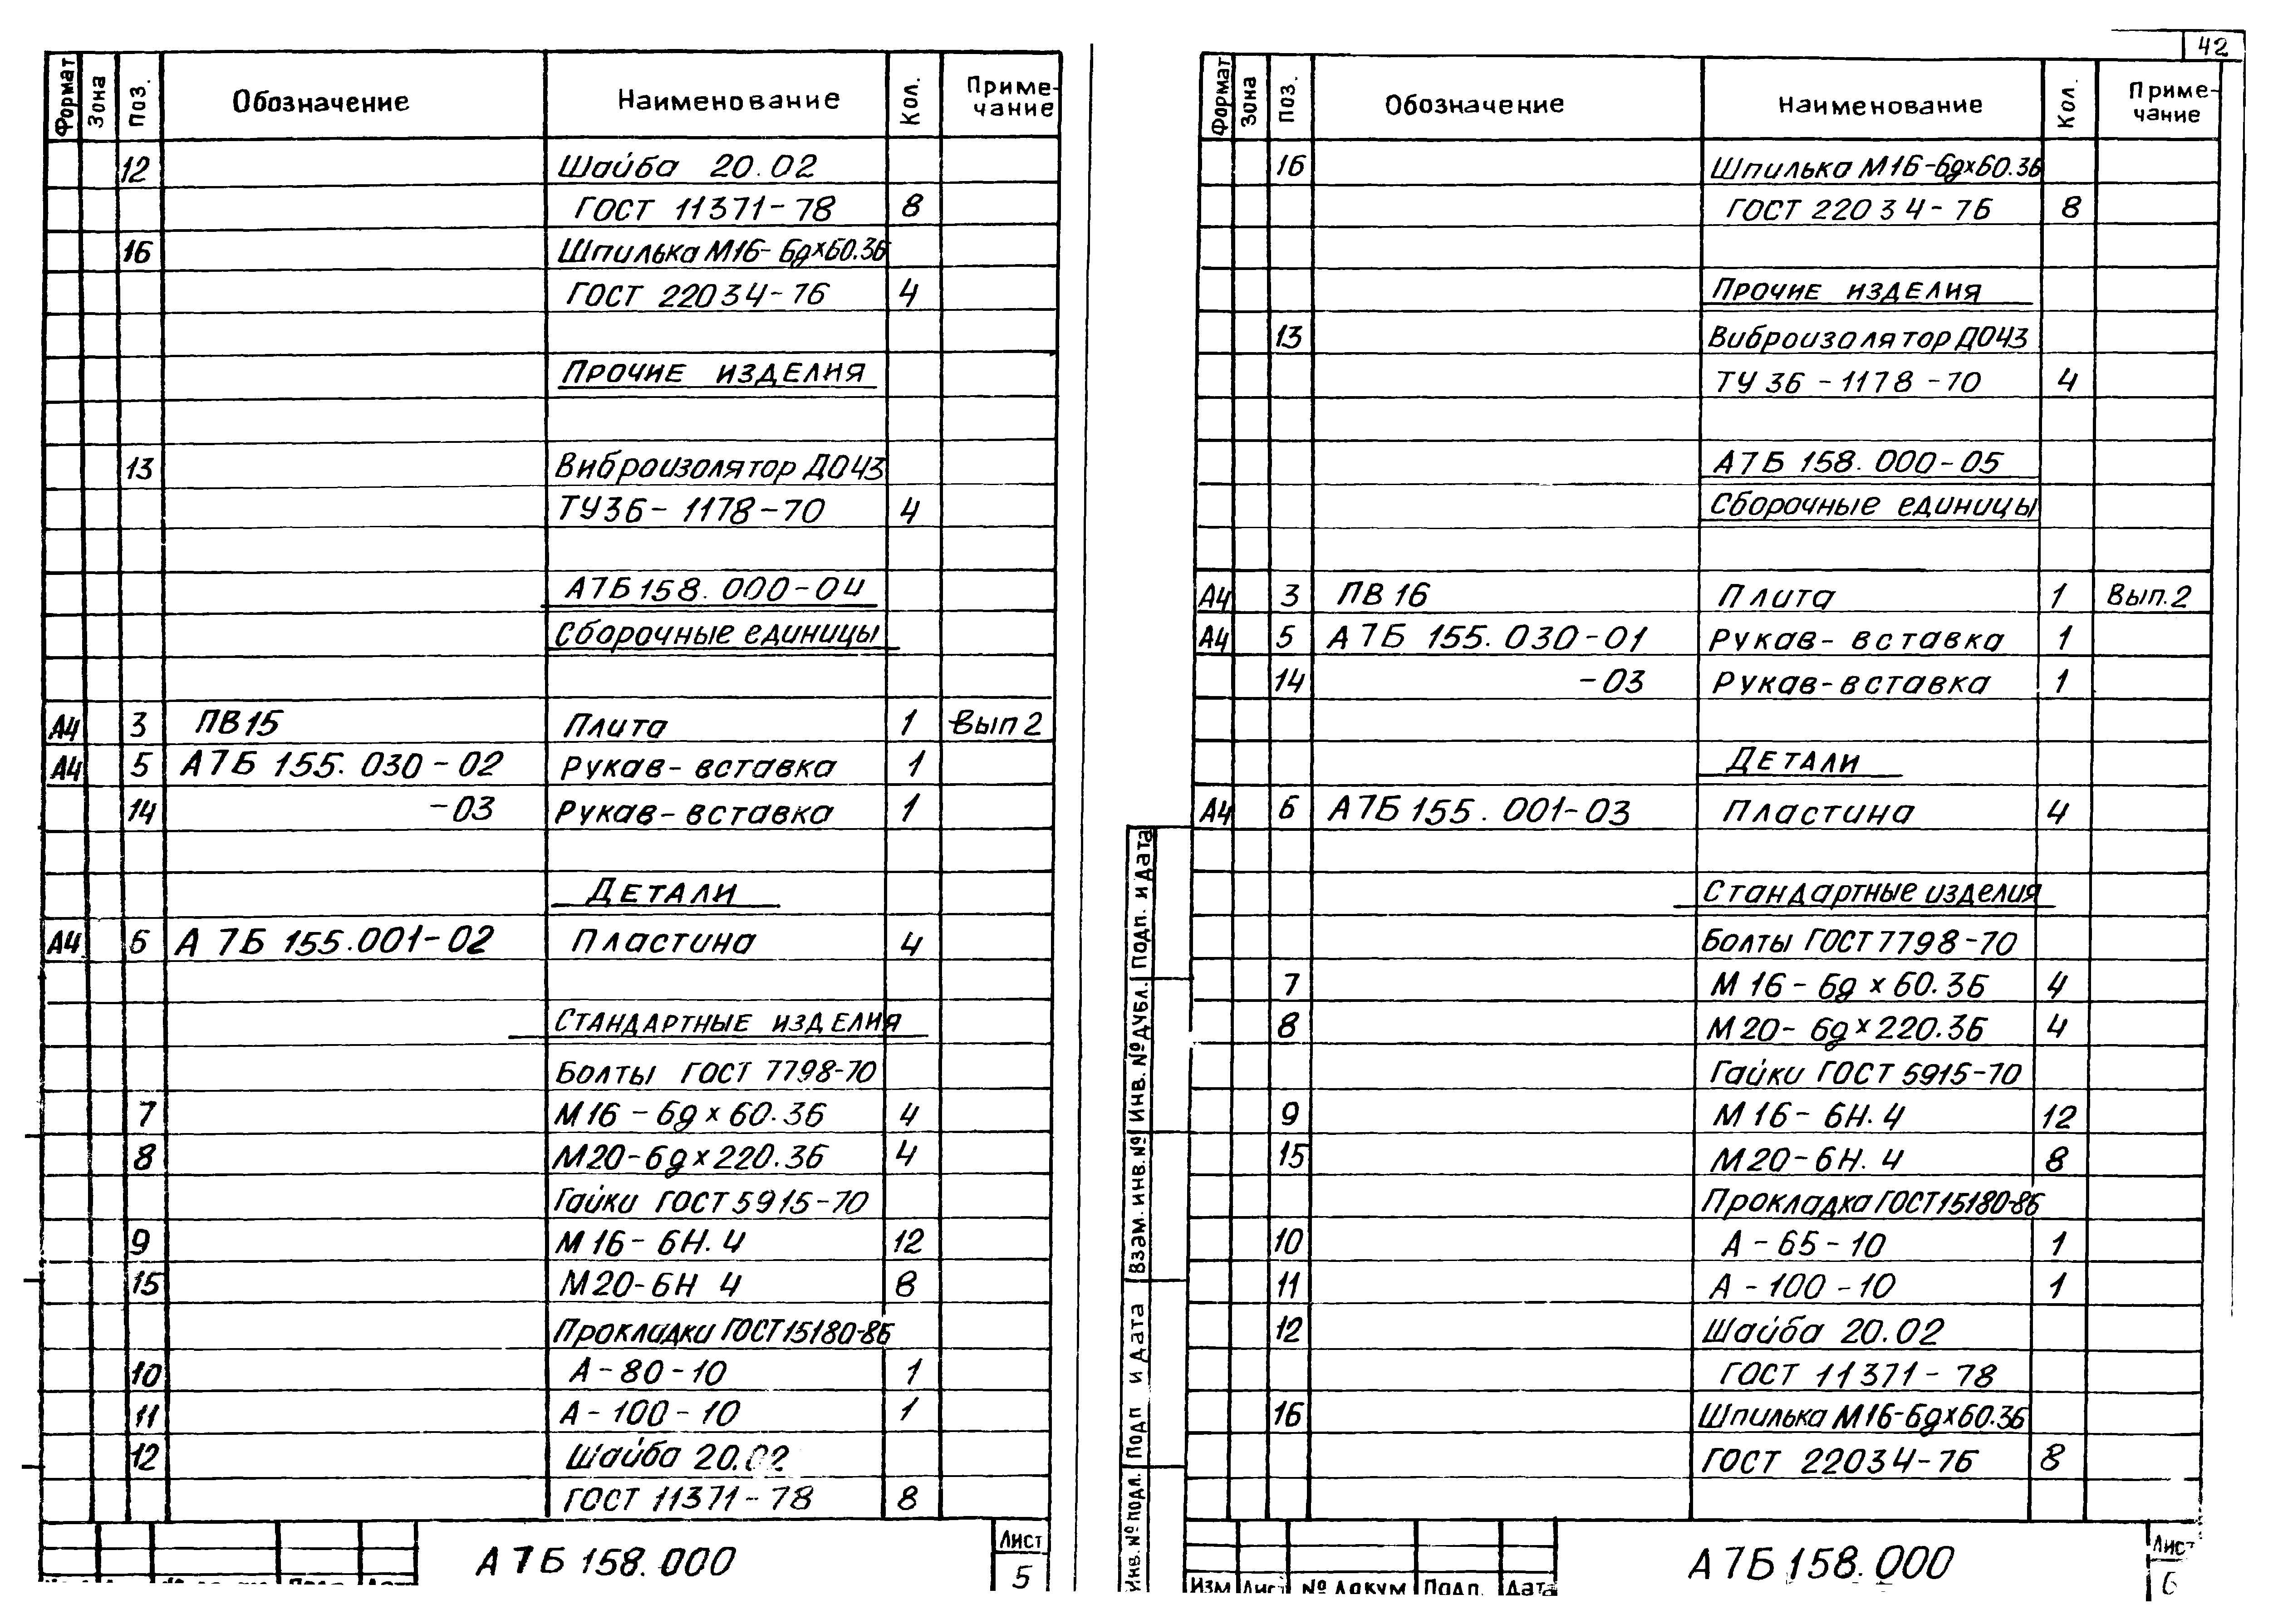 Формат Зона Поз. Обозначение Наименование Кол. Приме-
чание
12 Шайба 20.02
ГОСТ 11371-78 8
16 Шпилька М16-6gх60.36
ГОСТ 22034-76 4
Прочие изделия
13 Виброизолятор ДО43
ТУ36-1178-70 4
А7Б158.000-04
Сборочные единицы
А4 3 ПВ15 Плита 1 Вып 2
А4 5 А7Б 155.030-02 Рукав-вставка 1
14 -03 Рукав-вставка 1
Детали
А4 6 А7Б 155.001-02 Пластина 4
Стандартные изделия
Болты ГОСТ 7798-70
7 М16-6gх60.36 4
8 М20-6gх220.36 4
Гайки ГОСТ 5915-70
9 М16-6Н.4 12
15 М20-6Н 4 8
Прокладки ГОСТ15180-86
10 А-80-10 1
11 А-100-10 1
12 Шайба 20.02
ГОСТ 11371-78 8
А7Б 158.000
Лист
5
42
Формат Зона Поз. Обозначение Наименование Кол. Приме-
чание
16 Шпилька М16-6gх60.36
ГОСТ 22034-76 8
Прочие изделия
13 Виброизолятор ДО43
ТУ 36-1178-70 4
А7Б 158.000-05
Сборочные единицы
А4 3 ПВ16 Плита 1 Вып.2
А4 5 А7Б 155.030-01 Рукав-вставка 1
14 -03 Рукав-вставка 1
Детали
А4 6 А7Б 155.001-03 Пластина 4
Стандартные изделия
Болты ГОСТ7798-70
7 М16-6gх60.36 4
8 М20-6gх220.36 4
Гайки ГОСТ 5915-70
9 М16-6Н.4 12
15 М20-6Н.4 8
Прокладка ГОСТ15180-86
10 А-65-10 1
11 А-100-10 1
12 Шайба 20.02
ГОСТ 11371-78
16 Шпилька М16-6gх60.36
ГОСТ 22034-76 8
Инв.№подл. Подп и дата Взам. инв.№ Инв.№дубл. Подп. и дата
Изм Лист № докум Подп. Дата
А7Б 158.000
Лист
6